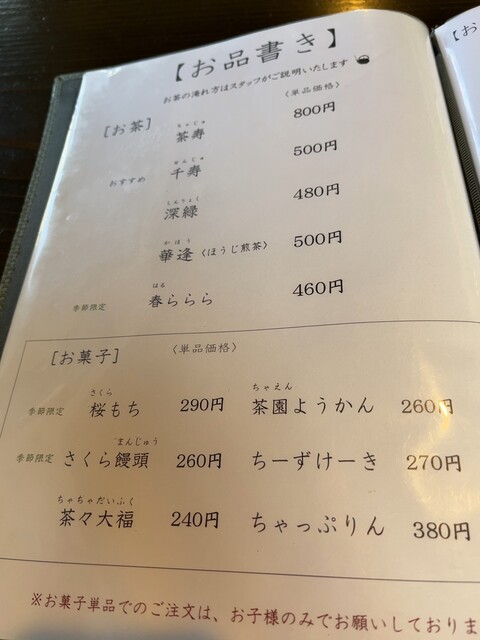 【お品書き】
お茶の淹れ方はスタッフがご説明いたします
〈単品価格〉
[お茶]
ちゃじゅ
茶寿 800円
せんじゅ
おすすめ 千寿 500円
しんりょく
深緑 480円
かほう
華逢〈ほうじ煎茶〉 500円
はる
季節限定 春ららら 460円
[お菓子] 〈単品価格〉
さくら ちゃえん
季節限定 桜もち 290円 茶園ようかん 260円
まんじゅう
季節限定 さくら饅頭 260円 ちーずけーき 270円
ちゃちゃだいふく
茶々大福 240円 ちゃっぷりん 380円
※お菓子単品でのご注文は、お子様のみでお願いしておりま
【お